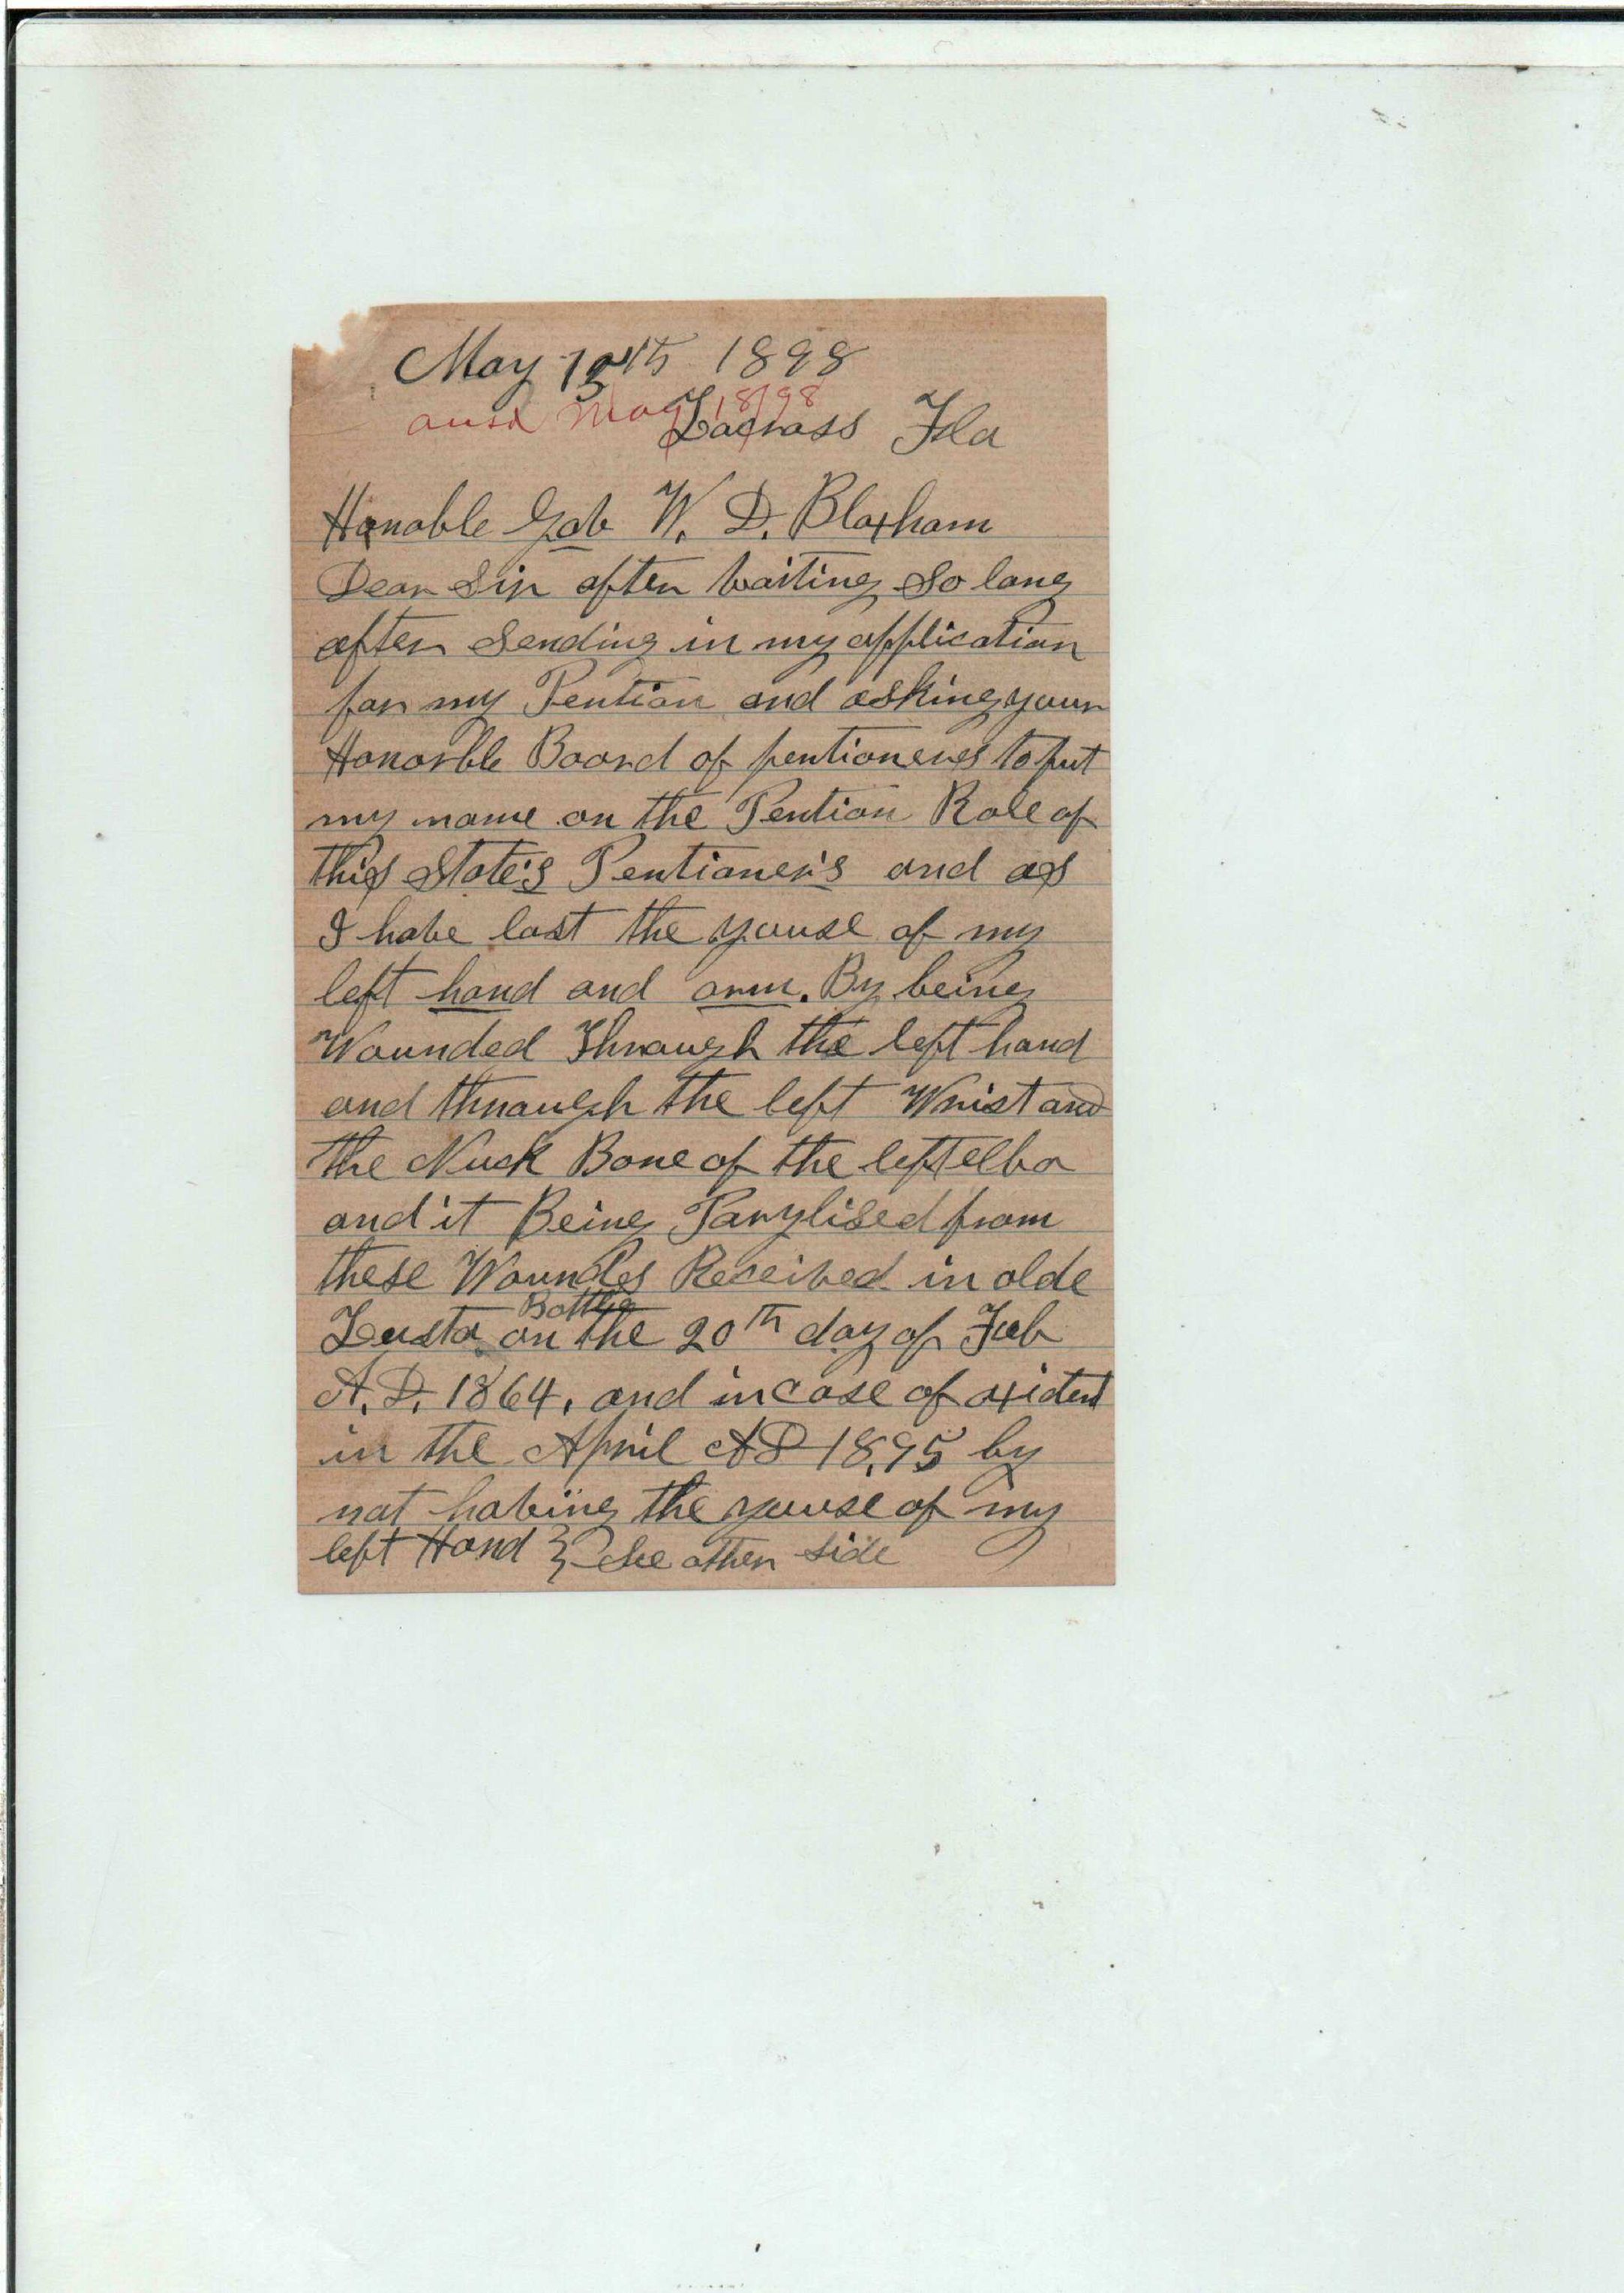 May 15th 1898
ansd May 18/98
Lacrass Fla
Honable Gov W. D. Bloxham
Dear Sir after waiting So long
after Sending in my application
for my Pention and asking your
Honorble Board of pentioneres to put
my name on the Pention Role of
this State's Pentioner's and as
I have lost the youse of my
left hand and arm. By being
Wounded Through the left hand
and through the left Wrist and
the Nuck Bone of the left elbo
and it Being Parylised from
these Woundes Received in olde
Battle
Lusta on the 20th day of Feb
A.D. 1864. and in case of axident
in the April AD 1895 by
not having the youse of my
left Hand } See other side